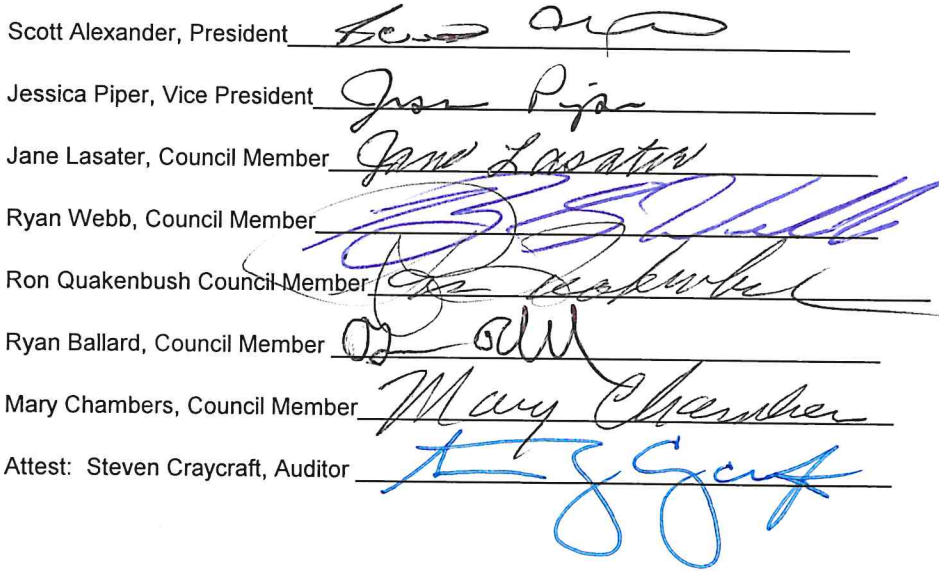 Scott Alexander, President
Jessica Piper, Vice President
Jane Lasater, Council Member Jane Lasater
Ryan Webb, Council Member
Ron Quakenbush Council Member
Ryan Ballard, Council Member
Mary Chambers, Council Member Mary Chambers
Attest: Steven Craycraft, Auditor